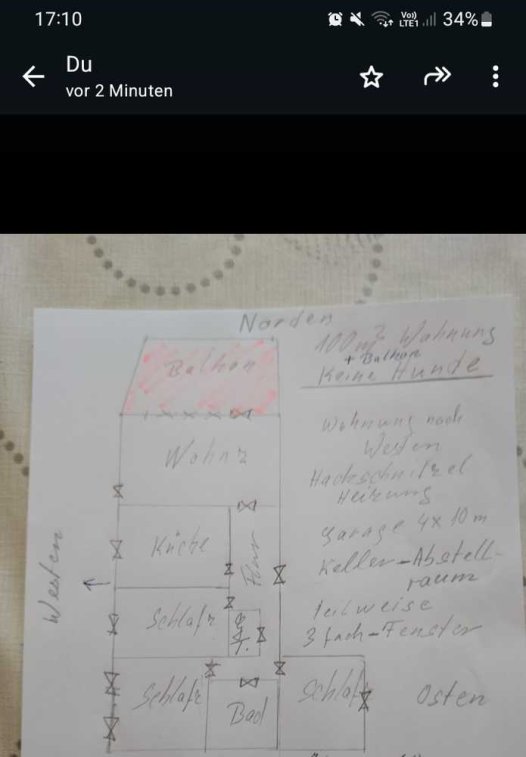 17:10
Vo))
LTE1
34%
Du
vor 2 Minuten
Norden
100 m² Wohnung
+ Balkon
Keine Hunde
Balkon
Wohnung nach
Westen
Hackschnitzel
Heizung
Garage 4x10 m
Keller-Abstell-
raum
teilweise
3fach-Fenster
Wohnz
Westen
Küche
Flur
Schlafz
Schlafz
Bad
Schlafz
Osten